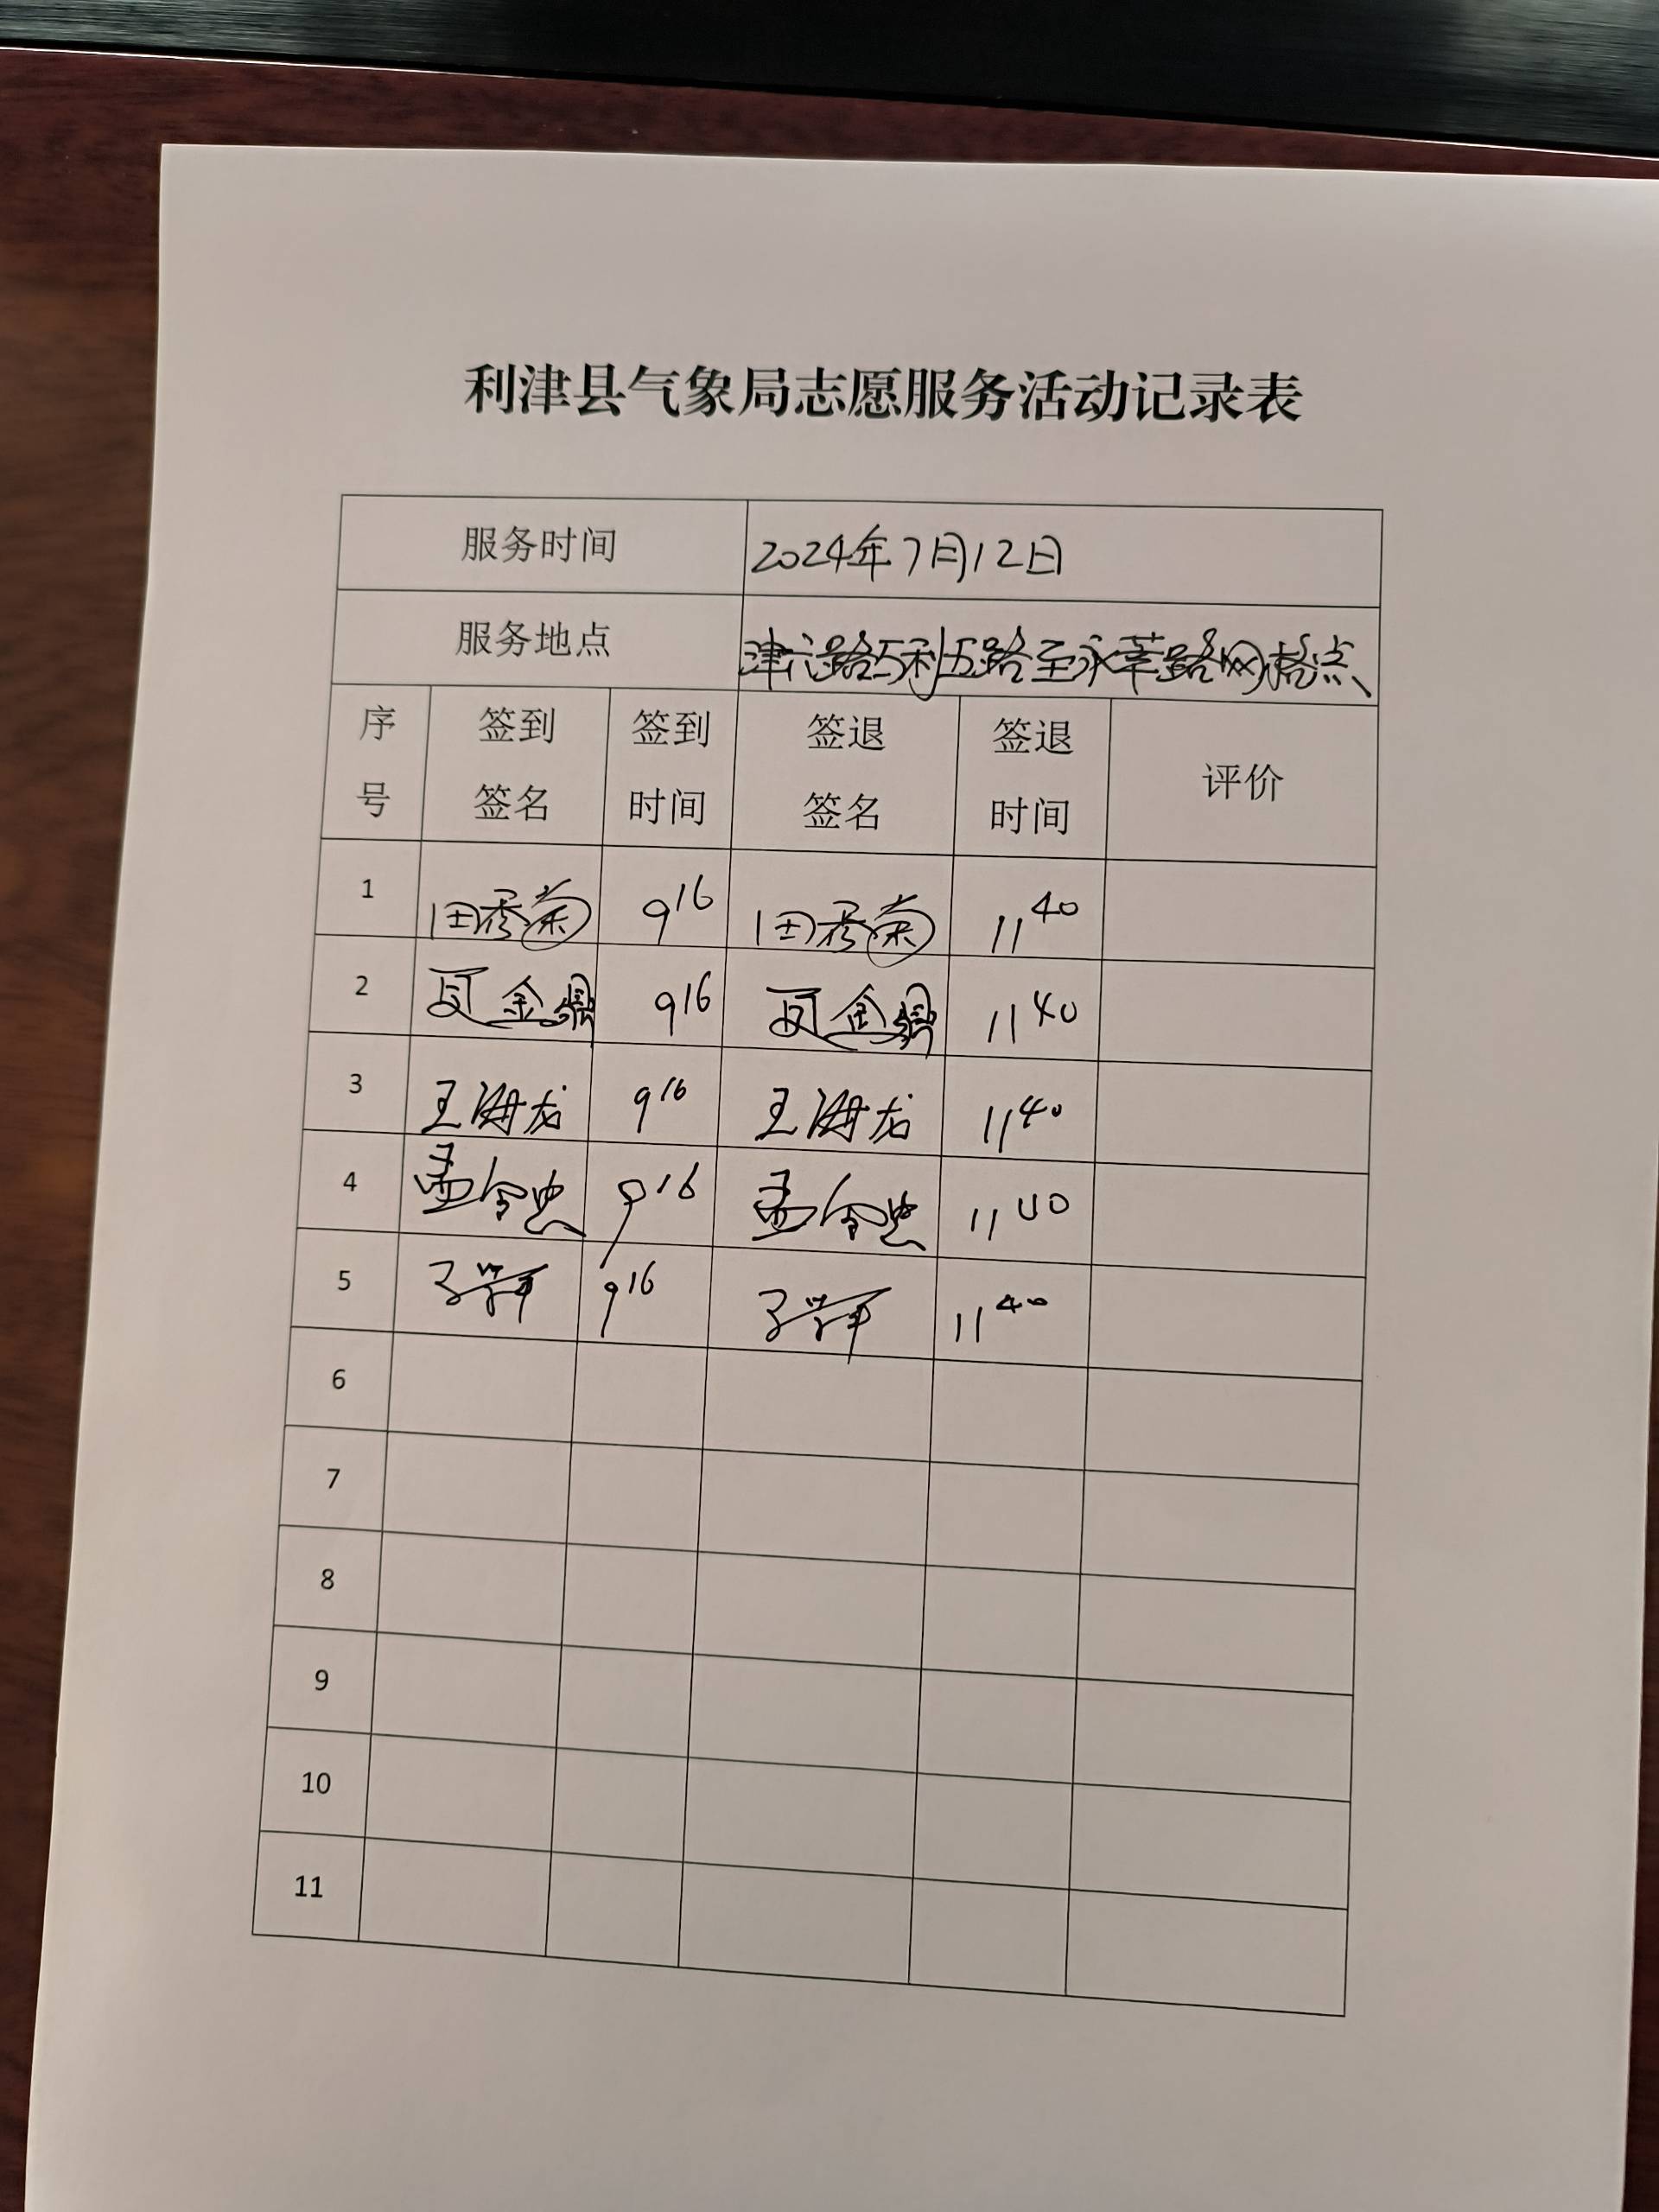 利津县气象局志愿服务活动记录表
服务时间 2024年7月12日
服务地点 津六路与利五路至永莘路网格点
序号 签到签名 签到时间 签退签名 签退时间 评价
1 田秀菊 9 16 田秀菊 11 40
2 夏金鼎 9 16 夏金鼎 11 40
3 王海龙 9 16 王海龙 11 40
4 孟令忠 9 16 孟令忠 11 40
5 9 16 11 40
6
7
8
9
10
11